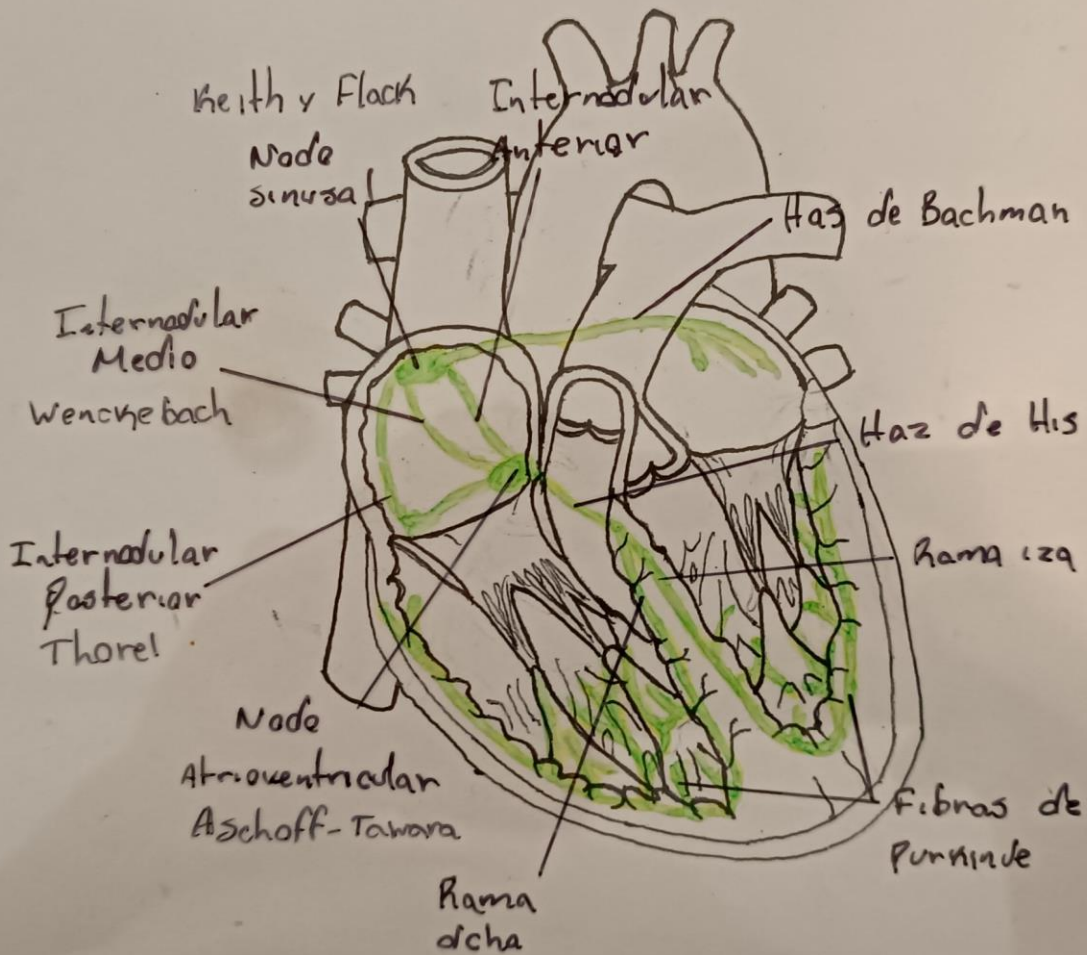 Keith y Flack
Nodo
sinusal
Internodular
Anterior
Has de Bachman
Internodular
Medio
Wenckebach
Haz de His
Internodular
Posterior
Thorel
Rama izq
Nodo
Atrioventricular
Aschoff-Tawara
Fibras de
Purkinde
Rama
dcha